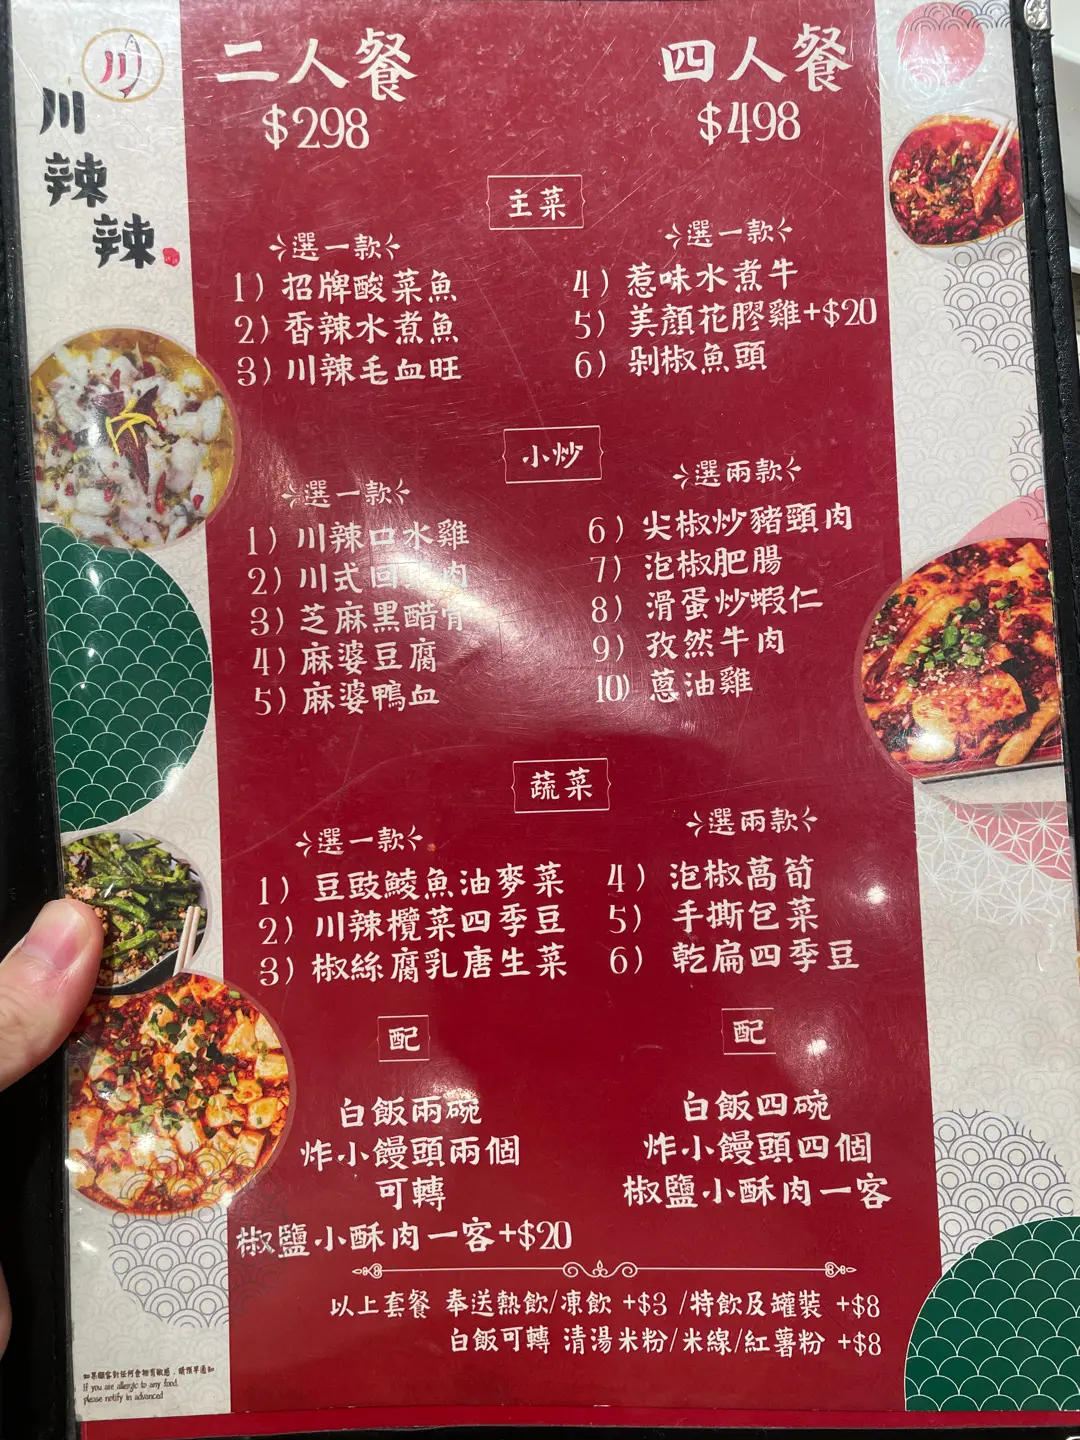 川
川
辣
辣
二人餐
$298
四人餐
$498
主菜
選一款
1) 招牌酸菜魚
2) 香辣水煮魚
3) 川辣毛血旺
選一款
4) 惹味水煮牛
5) 美顏花膠雞+$20
6) 剁椒魚頭
小炒
選一款
1) 川辣口水雞
2) 川式回肉
3) 芝麻黑醋骨
4) 麻婆豆腐
5) 麻婆鴨血
選兩款
6) 尖椒炒豬頸肉
7) 泡椒肥腸
8) 滑蛋炒蝦仁
9) 孜然牛肉
10) 蔥油雞
蔬菜
選一款
1) 豆豉鯪魚油麥菜
2) 川辣欖菜四季豆
3) 椒絲腐乳唐生菜
選兩款
4) 泡椒萵筍
5) 手撕包菜
6) 乾扁四季豆
配
白飯兩碗
炸小饅頭兩個
可轉
椒鹽小酥肉一客+$20
配
白飯四碗
炸小饅頭四個
椒鹽小酥肉一客
以上套餐 奉送熱飲/凍飲 +$3 /特飲及罐裝 +$8
白飯可轉 清湯米粉/米線/紅薯粉 +$8
如果顧客對任何食物有敏感，請預早通知
If you are allergic to any food,
please notify in advanced